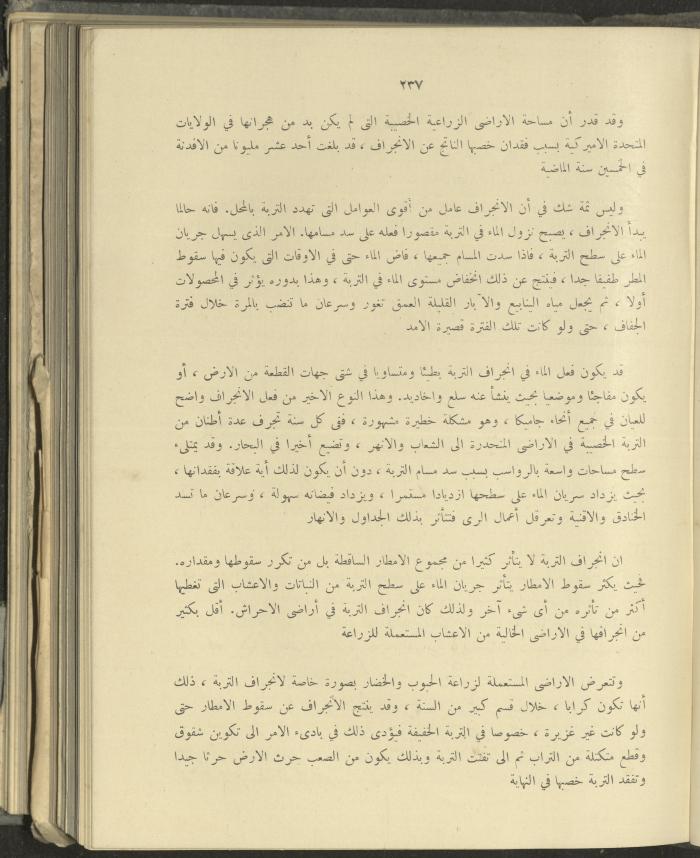 ٢٣٧
وقد قدر أن مساحة الاراضى الزراعية الخصيبة التى لم يكن بد من هجرانها في الولايات
المتحدة الاميركية بسبب فقدان خصبها الناتج عن الانجراف ، قد بلغت أحد عشر مليونا من الافدنة
في الخمسين سنة الماضية
وليس ثمة شك في أن الانجراف عامل من أقوى العوامل التى تهدد التربة بالمحل. فانه حالما
يبدأ الانجراف ، يصبح نزول الماء في التربة مقصورا فعله على سد مسامها. الامر الذى يسهل جريان
الماء على سطح التربة ، فاذا سدت المسام جميعها ، فاض الماء حتى في الاوقات التى يكون فيها سقوط
المطر طفيفا جدا ، فينتج عن ذلك انخفاض مستوى الماء في التربة ، وهذا بدوره يؤثر في المحصولات
أولا ، ثم يجعل مياه الينابيع والآبار القليلة العمق تغور وسرعان ما تنضب بالمرة خلال فترة
الجفاف ، حتى ولو كانت تلك الفترة قصيرة الامد
قد يكون فعل الماء في انجراف التربة بطيئا ومتساويا في شتى جهات القطعة من الارض ، أو
يكون مفاجئا وموضعيا بحيث ينشأ عنه سلع واخاديد. وهذا النوع الاخير من فعل الانجراف واضح
للعيان في جميع أنحاء جاميكا ، وهو مشكلة خطيرة مشهورة ، ففى كل سنة تجرف عدة أطنان من
التربة الخصيبة في الاراضى المنحدرة الى الشعاب والانهر ، وتضيع أخيرا في البحار. وقد يمتلىء
سطح مساحات واسعة بالرواسب بسبب سد مسام التربة ، دون أن يكون لذلك أية علاقة بفقدانها ،
بحيث يزداد سريان الماء على سطحها ازديادا مستمرا ، ويزداد فيضانه سهولة ، وسرعان ما تسد
الخنادق والاقنية وتعرقل أعمال الرى فتتأثر بذلك الجداول والانهار
ان انجراف التربة لا يتأثر كثيرا من مجموع الامطار الساقطة بل من تكرر سقوطها ومقداره.
فحيث يكثر سقوط الامطار يتأثر جريان الماء على سطح التربة من النباتات والاعشاب التى تغطيها
أكثر من تأثره من أى شىء آخر ولذلك كان انجراف التربة في أراضى الاحراش. أقل بكثير
من انجرافها في الاراضى الخالية من الاعشاب المستعملة للزراعة
وتتعرض الاراضى المستعملة لزراعة الحبوب والخضار بصورة خاصة لانجراف التربة ، ذلك
أنها تكون كرابا ، خلال قسم كبير من السنة ، وقد ينتج الانجراف عن سقوط الامطار حتى
ولو كانت غير غزيرة ، خصوصا في التربة الخفيفة فيؤدى ذلك في بادىء الامر الى تكوين شقوق
وقطع متكتلة من التراب ثم الى تفتت التربة وبذلك يكون من الصعب حرث الارض حرثا جيدا
وتفقد التربة خصبها في النهاية